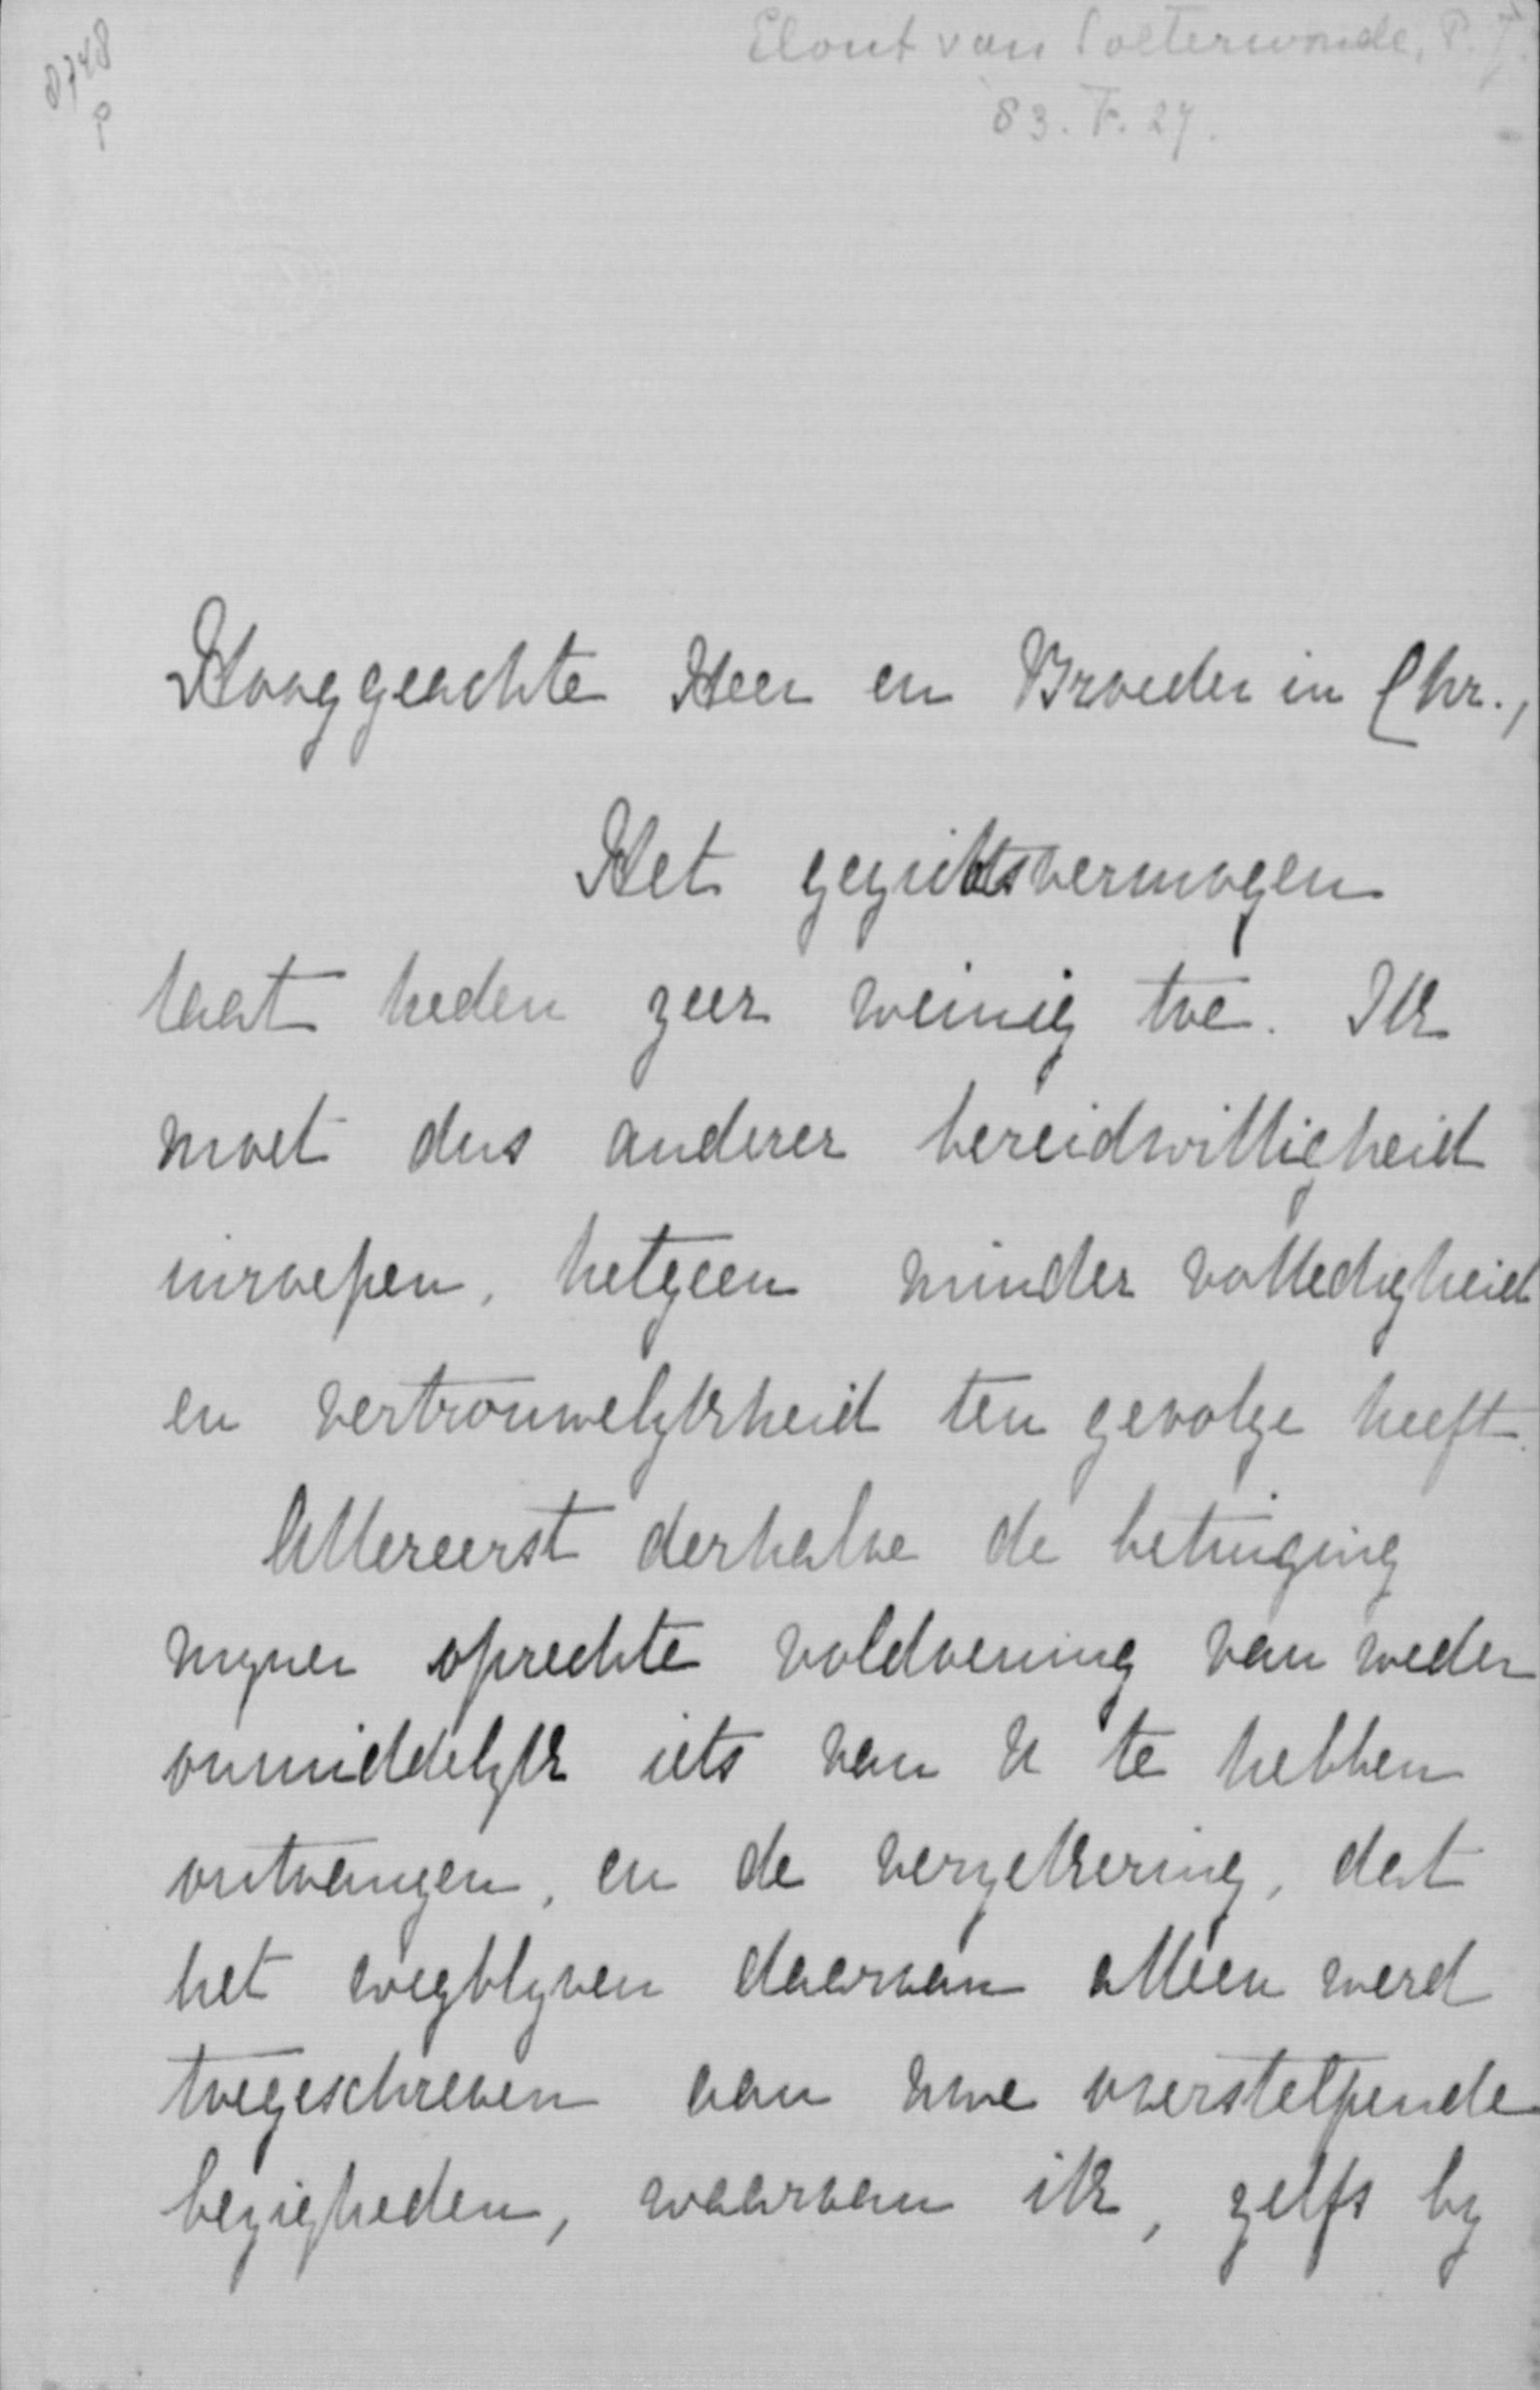 8748
P
Elout van Soeterwoude, P.J.
83. F. 27.
Hooggeachte Heer en Broeder in Chr.,
Het gezichtsvermogen
laat heden zeer weinig toe. Ik
moet dus anderer bereidwilligheid
inroepen, hetgeen minder volledigheid
en vertrouwelykheid ten gevolge heeft.
Allereerst derhalve de betuiging
myner oprechte voldoening van weder
onmiddelyk iets van U te hebben
ontvangen, en de verzekering, dat
het wegblyven daarvan alleen werd
toegeschreven aan uwe overstelpende
bezigheden, waarvan ik, zelfs by